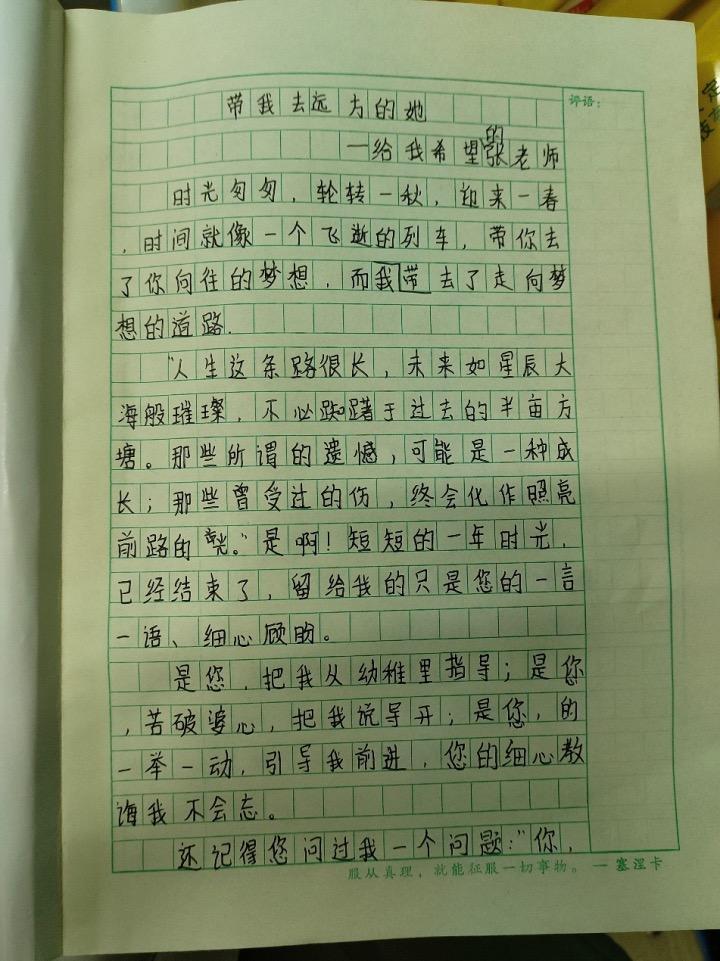 带我去远方的她
评语:
一给我希望的张老师
时光匆匆，轮转一秋，迎来一春
，时间就像一个飞逝的列车，带你去
了你向往的梦想，而我带去了走向梦
想的道路.
"人生这条路很长，未来如星辰大
海般璀璨，不必踟躇于过去的半亩方
塘。那些所谓的遗憾，可能是一种成
长；那些曾受过的伤，终会化作照亮
前路的光。"是啊！短短的一年时光，
已经结束了，留给我的只是您的一言
一语、细心顾盼。
是您，把我从幼稚里指导；是您
，苦破婆心，把我说导开；是您，的
一举一动，引导我前进，您的细心教
诲我不会忘。
还记得您问过我一个问题："你，
服从真理，就能征服一切事物。 — 塞涅卡
定